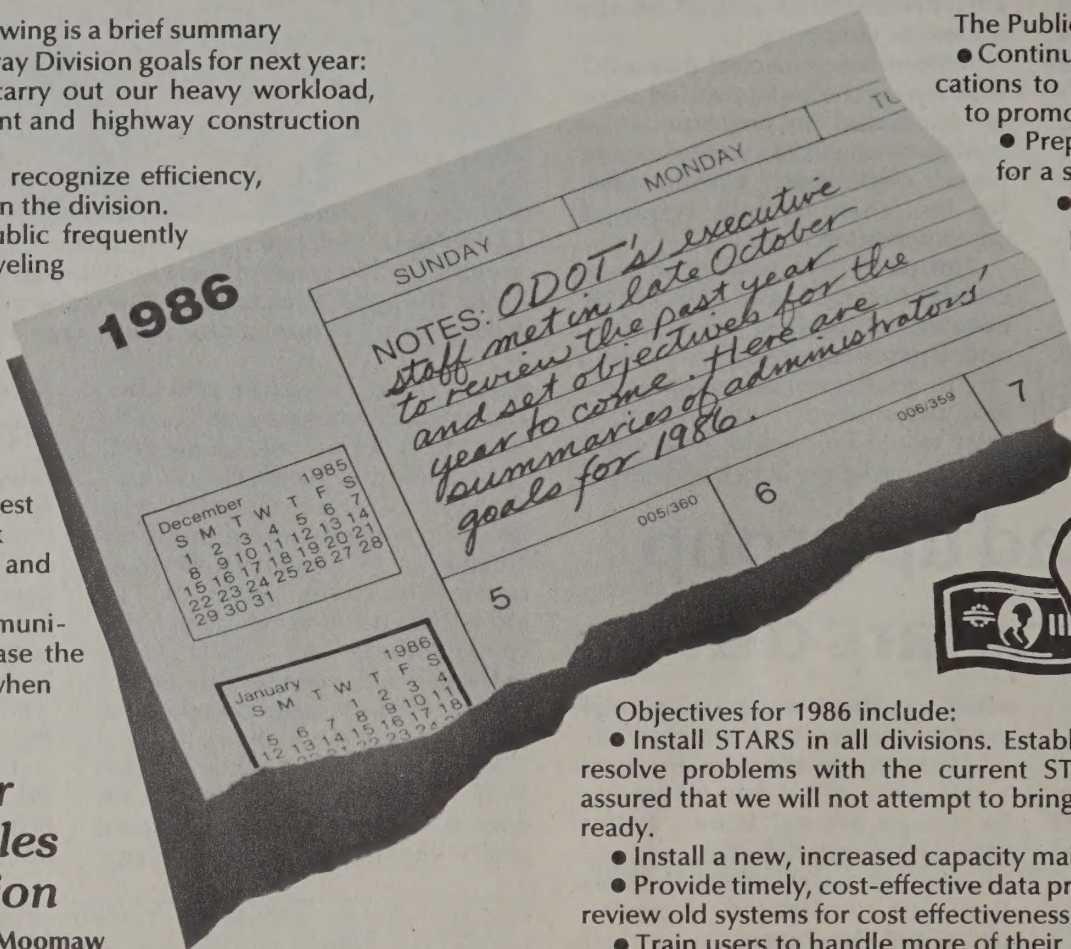 wing is a brief summary
ay Division goals for next year:
carry out our heavy workload,
nt and highway construction
recognize efficiency,
n the division.
ublic frequently
veling
est
and
muni-
ase the
when
r
les
on
Moomaw
1986
SUNDAY
MONDAY
TU
NOTES: ODOT's executive
staff met in late October
to review the past year
and set objectives for the
year to come. Here are
summaries of administrators'
goals for 1986.
005/360
006/359
5
6
7
December 1985
S M T W T F S
1 2 3 4 5 6 7
8 9 10 11 12 13 14
15 16 17 18 19 20 21
22 23 24 25 26 27 28
29 30 31
January 1986
S M T W T F S
1 2 3 4
5 6 7 8 9 10 11
12 13 14 15 16 17 18
The Public
● Continu
cations to
to promo
● Prep
for a s
●
Objectives for 1986 include:
● Install STARS in all divisions. Establ
resolve problems with the current ST
assured that we will not attempt to bring
ready.
● Install a new, increased capacity ma
● Provide timely, cost-effective data pr
review old systems for cost effectiveness
● Train users to handle more of their